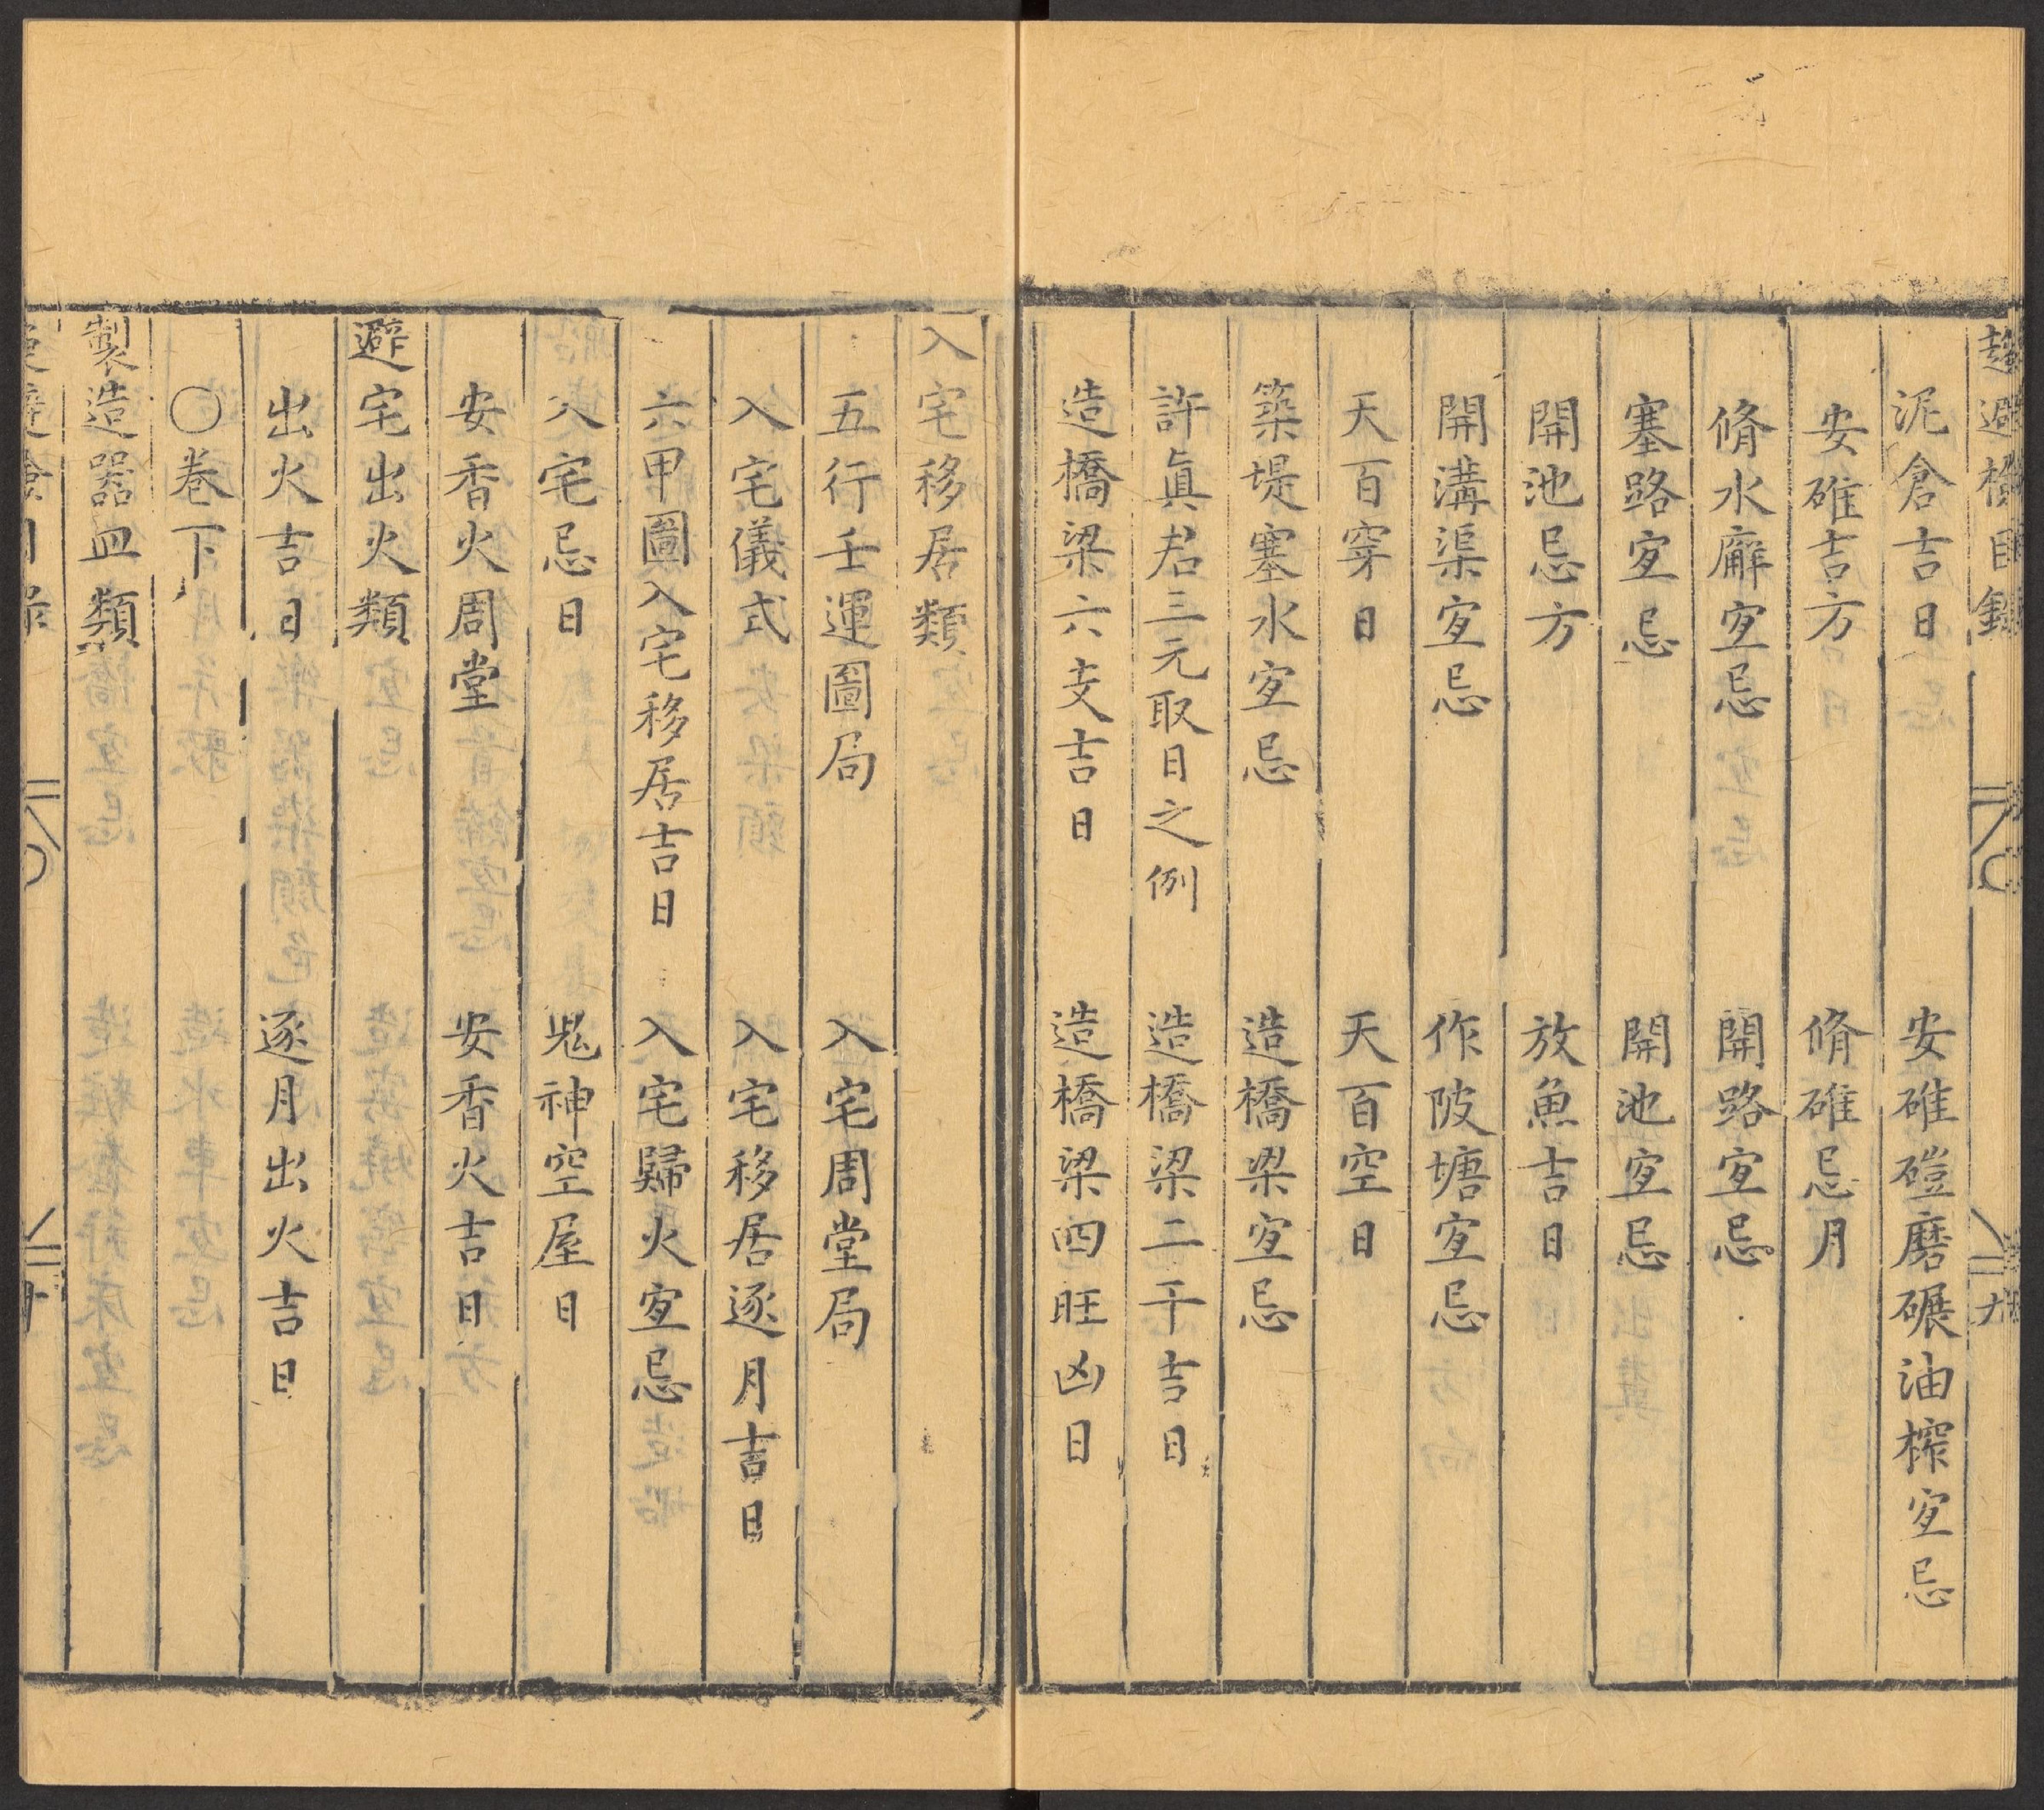 趨避檢目錄
泥倉吉日　安碓磑磨碾油榨宜忌
安碓吉方　脩碓忌月
脩水廨宜忌　開路宜忌
塞路宜忌　開池宜忌
開池忌方　放魚吉日
開溝渠宜忌　作陂塘宜忌
天百穿日　天百空日
築堤塞水宜忌　造橋梁宜忌
許眞君三元取日之例　造橋梁二干吉日
造橋梁六支吉日　造橋梁四旺凶日
入宅移居類
五行壬運圖局　入宅周堂局
入宅儀式　入宅移居逐月吉日
六甲圖入宅移居吉日　入宅歸火宜忌
入宅忌日　鬼神空屋日
安香火周堂　安香火吉日
避宅出火類
出火吉日　逐月出火吉日
○卷下
製造器皿類